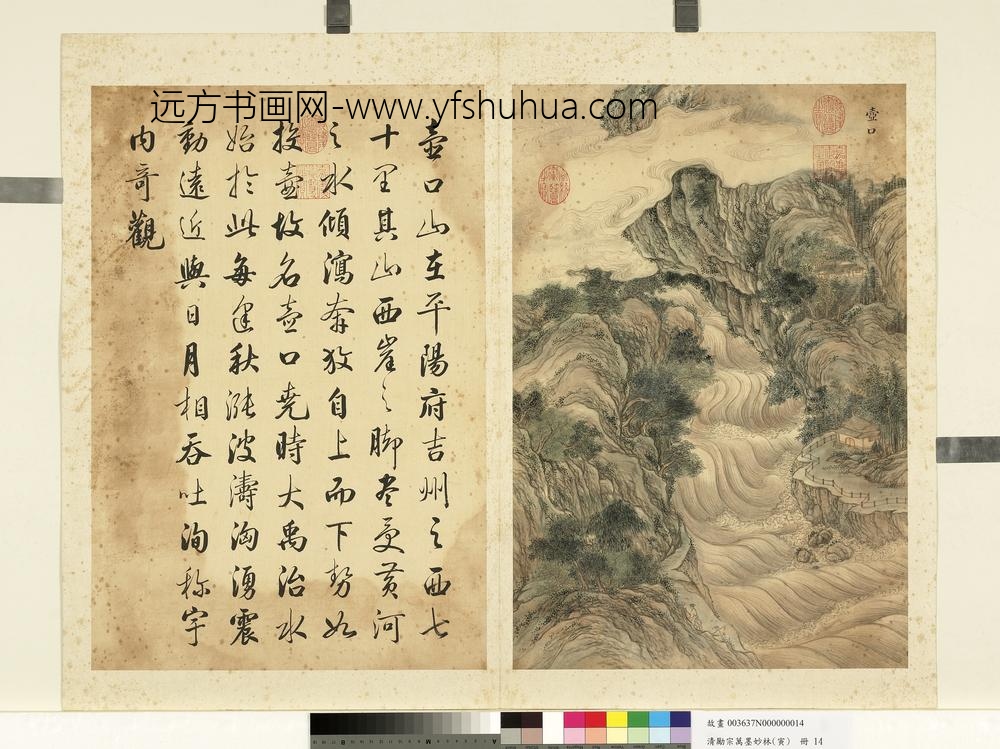 远方书画网-www.yfshuhua.com
壺口
壺口山在平陽府吉州之西七
十里其山西崖之脚盡受黃河
之水傾瀉奔放自上而下勢如
投壺故名壺口堯時大禹治水
始於此每逢秋漲波濤洶湧震
動遠近與日月相吞吐洵称宇
内奇觀
故畫 003637N000000014
清勵宗萬墨妙林(寅) 冊 14